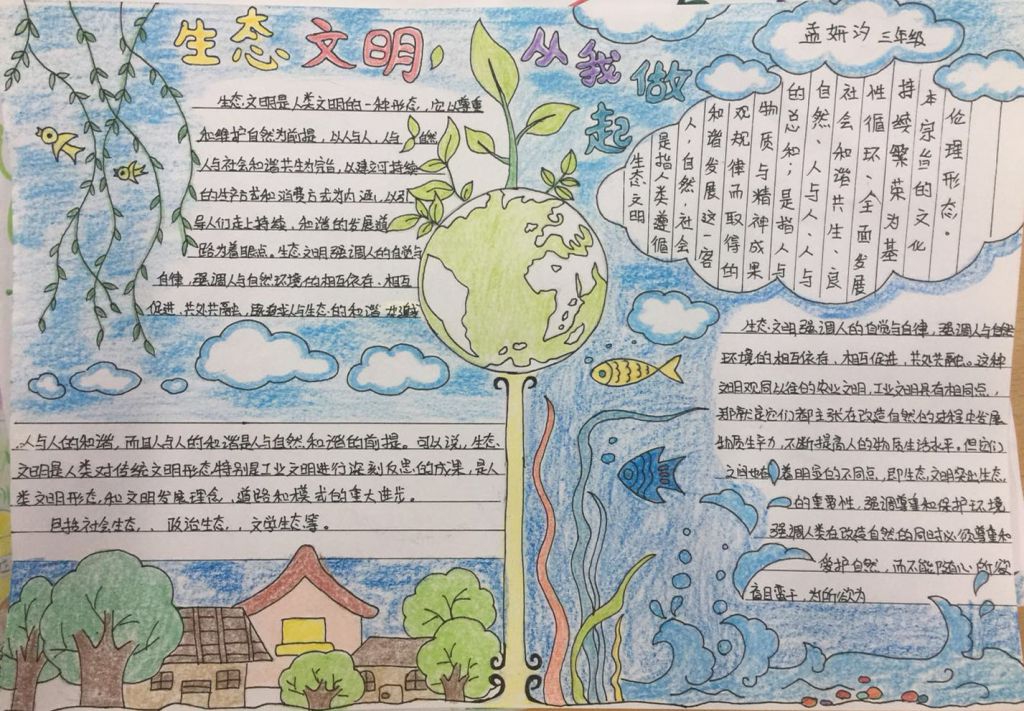 生态文明，从我做起
孟妍汐 三年级
生态文明是人类文明的一种形态，它以尊重
和维护自然为前提，以人与人，人与自然
人与社会和谐共生为宗旨，以建立可持续
的生产方式和消费方式为内涵，以引
导人们走上持续，和谐的发展道
路为着眼点。生态文明强调人的自觉与
自律，强调人与自然环境的相互依存、相互
促进、共处共融，既追求人与生态的和谐
人与人的和谐，而且人与人的和谐是人与自然和谐的前提。可以说，生态
文明是人类对传统文明形态特别是工业文明进行深刻反思的成果，是人
类文明形态和文明发展理念，道路和模式的重大进步。
包括社会生态、、政治生态，，文学生态等。
生态文明
是指人类遵循
人，自然，社会
和谐发展这一客
观规律而取得的
物质与精神成果
的总和；是指人与
自然、人与人、人与
社会和谐共生、良
性循环、全面发展
持续繁荣为基
本宗旨的文化
伦理形态。
生态文明强调人的自觉与自律，强调人与自然
环境的相互依存、相互促进，共处共融。这种
文明观同以往的农业文明，工业文明具有相同点，
那就是它们都主张在改造自然的过程中发展
物质生产力，不断提高人的物质生活水平。但它们
之间也有着明显的不同点，即生态文明突出生态
的重要性，强调尊重和保护环境
强调人类在改造自然的同时必须尊重和
爱护自然，而不能随心所欲
盲目蛮干，为所欲为